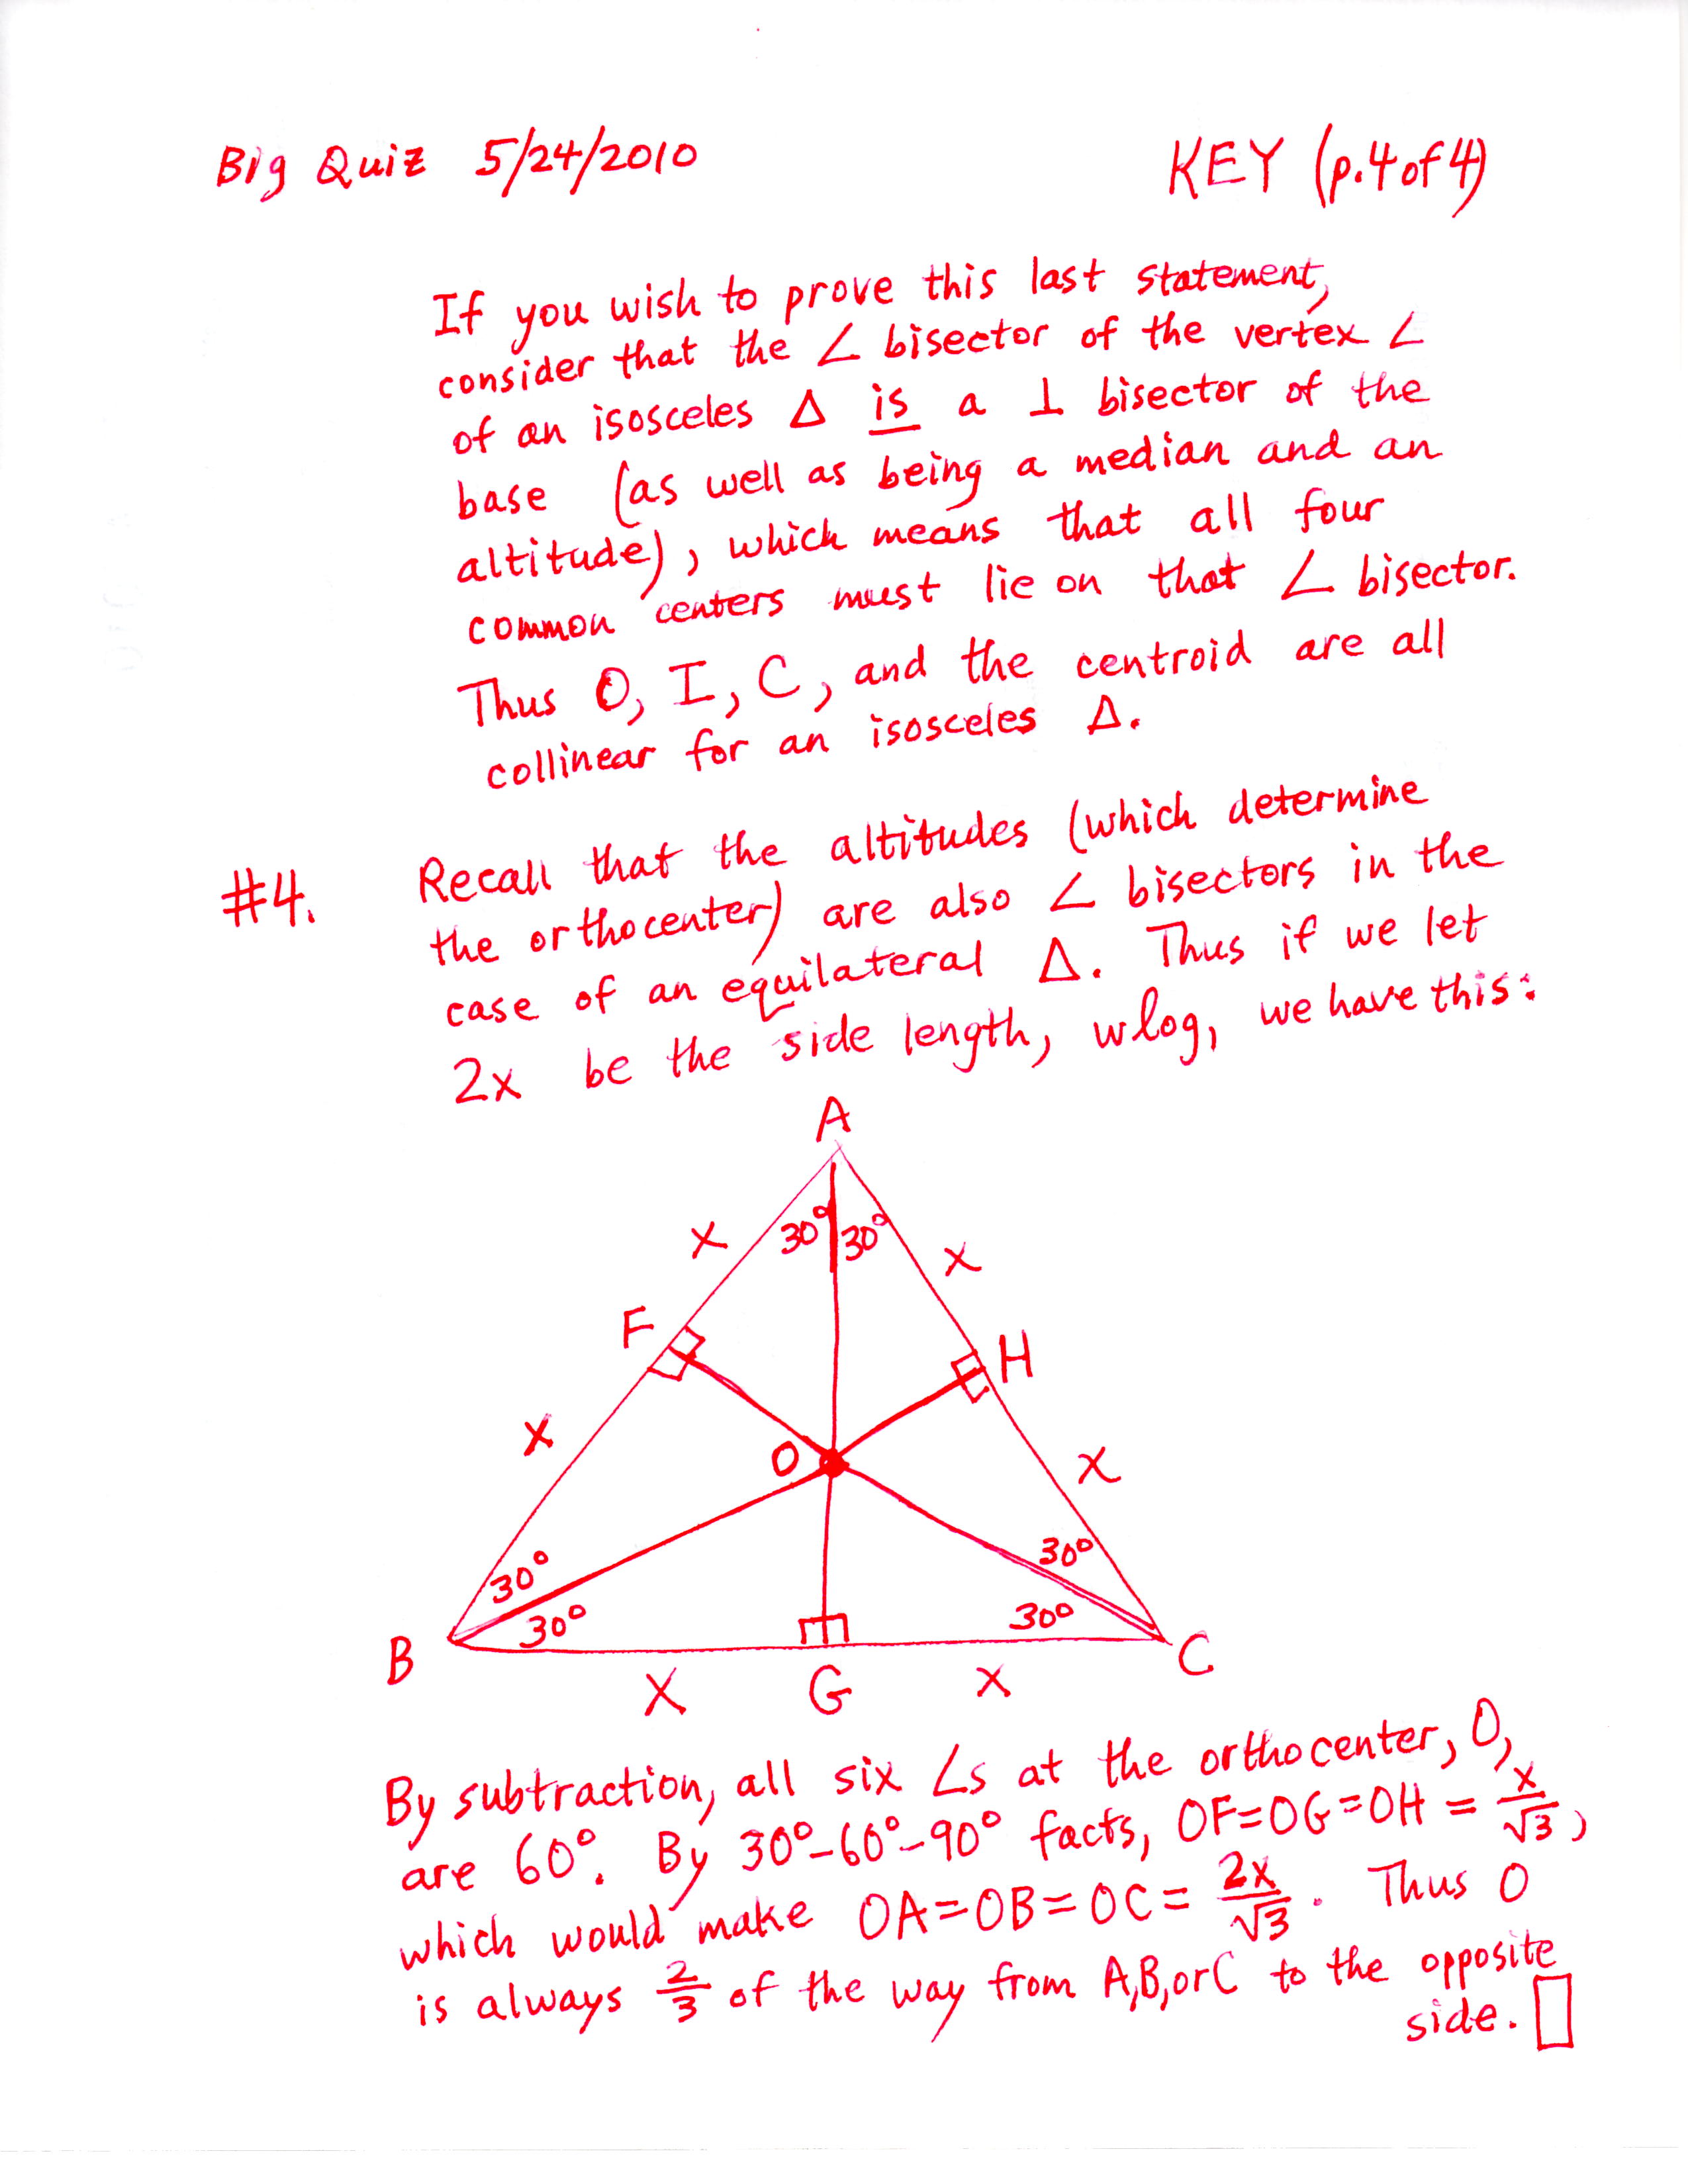 Big Quiz 5/24/2010 KEY (p.4 of 4)
If you wish to prove this last statement,
consider that the ∠ bisector of the vertex ∠
of an isosceles Δ is a ⊥ bisector of the
base (as well as being a median and an
altitude), which means that all four
common centers must lie on that ∠ bisector.
Thus O, I, C, and the centroid are all
collinear for an isosceles Δ.
#4. Recall that the altitudes (which determine
the orthocenter) are also ∠ bisectors in the
case of an equilateral Δ. Thus if we let
2x be the side length, wlog, we have this:
A
30° 30°
x x
F H
x O x
30° 30°
30° 30°
B C
x G x
By subtraction, all six ∠s at the orthocenter, O,
are 60°. By 30°-60°-90° facts, OF=OG=OH = x/√3,
which would make OA=OB=OC= 2x/√3. Thus O
is always 2/3 of the way from A,B,or C to the opposite
side.